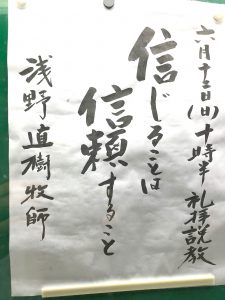 六月十二日(日)十時半 礼拝説教
信じることは
信頼すること
浅野直樹牧師